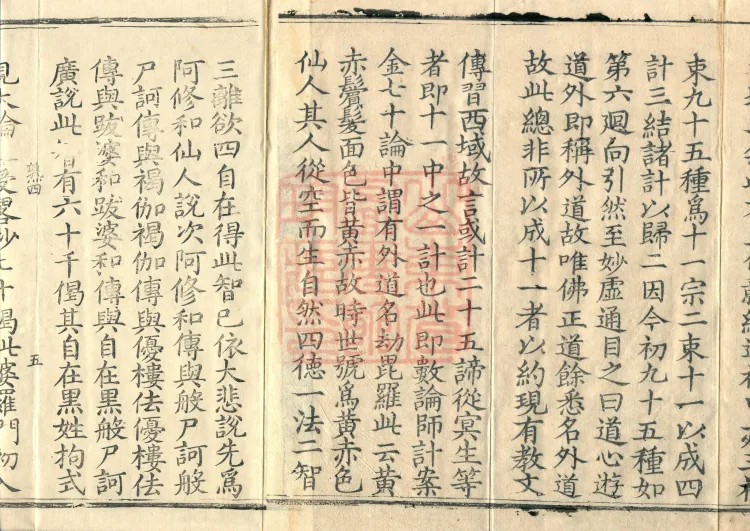 束九十五種爲十一宗二束十一以成四
計三結諸計以歸二因今初九十五種如
第六迴向引然至妙虛通目之曰道心遊
道外即稱外道故唯佛正道餘悉名外道
故此總非所以成十一者以約現有教文
傳習西域故言或計二十五諦從冥生等
者即十一中之一計也此即數論師計案
金七十論中謂有外道名劫毘羅此云黃
赤鬢髮面色皆黃赤故時世號爲黃赤色
仙人其人從空而生自然四德一法二智
三離欲四自在得此智已依大悲說先爲
阿修和仙人說次阿修和傳與般尸訶般
尸訶傳與褐伽褐伽傳與優樓佉優樓佉
傳與跋婆和跋婆和傳與自在黑般尸訶
廣說此智有六十千偈其自在黑姓拘式
五
七十偈此婆羅門初入